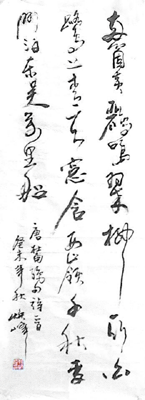 两个黄鹂鸣翠柳一行白
鹭上青天窗含西岭千秋雪
门泊东吴万里船
唐杜甫诗一首
癸未年秋